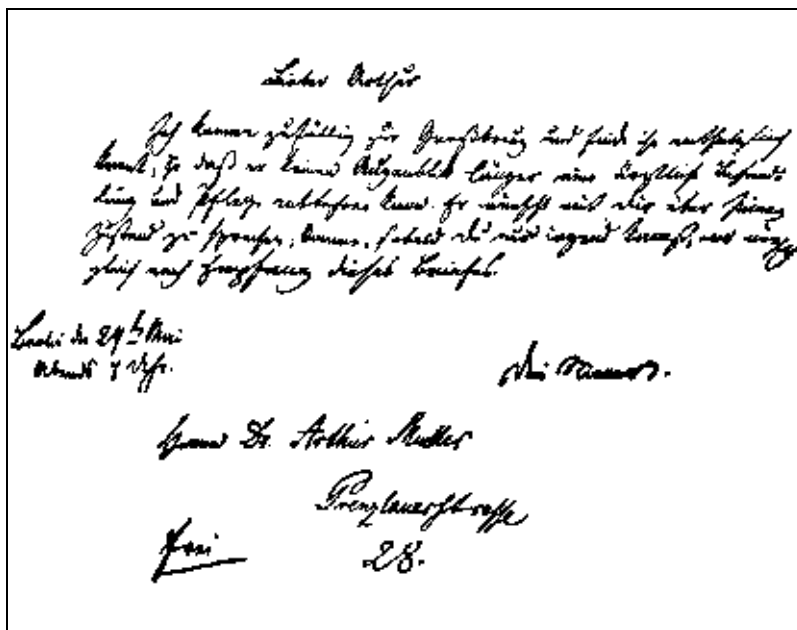 Lieber Arthur
Ich komme zufällig zur und finde ihn entsetzlich
krank, so daß er keinen Augenblick länger eine ärztliche Behand-
lung und Pflege entbehren kann. Er wünscht mit Dir über seinen
Zustand zu sprechen; komme, sobald Du nur irgend kannst, wo mög-
gleich nach Empfang dieses Briefes.
Berlin den 29t Mai
Abends 7 Uhr.
Dein
Herrn Dr. Arthur Müller
Prenzlauerstrasse
28.
frei